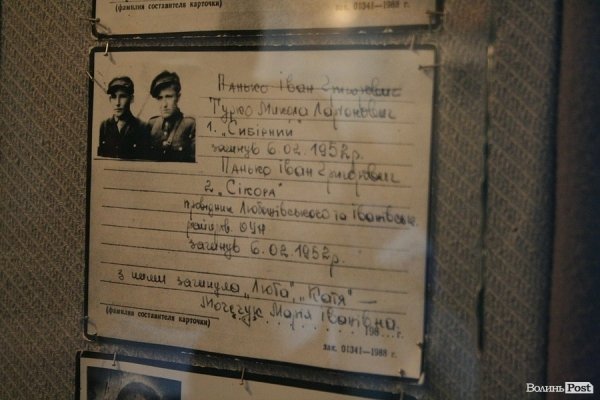 (фамилия составителя карточки)
зак. 01341—1988 г.
Панько Іван Григорович
Турко Микола Ларионович
1. „Сибірний"
загинув 6.02.1952р.
Панько Іван Григорович
2. „Сікора"
провідник Любешівського та Іванівськ.
райпров. ОУН
загинув 6.02.1952р.
З ними загинула „Люта", „Катя" —
Марія Іванівна
(фамилия составителя карточки) 198 г.
зак. 01341—1988 г.
ВолиньPost